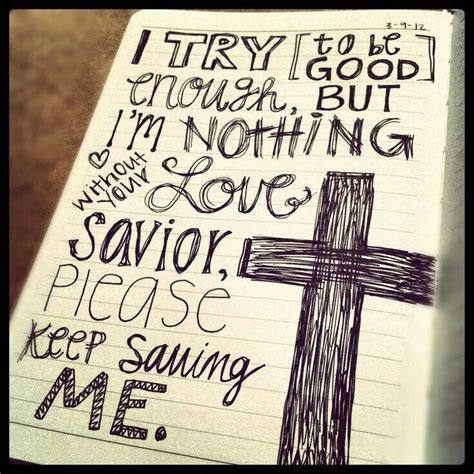 3-9-12
I TRY [to be GOOD]
enough, BUT
I'M NOTHING
without your Love
Savior,
Please
Keep saving
ME.